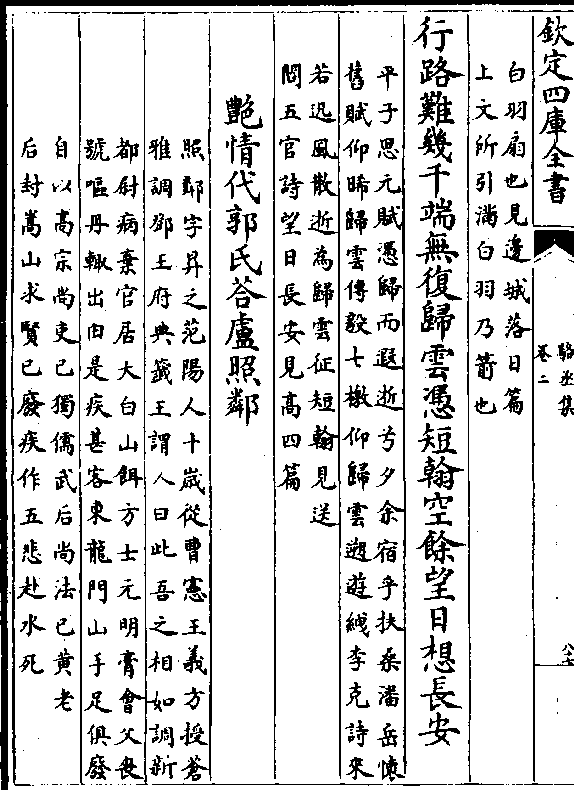 欽定四庫全書
駱丞集
卷二
八十七
白羽扇也見邊城落日篇
上文所引滿白羽乃箭也
行路難幾千端無復歸雲憑短翰空餘望日想長安
平子思元賦憑歸而遐逝兮夕余宿乎扶桑潘岳懐
舊賦仰晞歸雲傳毅七檄仰歸雲遡遊線李克詩來
若迅風散逝為歸雲征短翰見送
閻五官詩望日長安見高四篇
艷情代郭氏荅盧照鄰
照鄰字昇之范陽人十歳從曹憲王義方授蒼
雅調鄧王府典籖王謂人曰此吾之相如調新
都尉病棄官居大白山餌方士元明膏會父喪
號嘔丹輙出由是疾甚客東龍門山手足俱廢
自以高宗尚吏己獨儒武后尚法已黄老
后封嵩山求賢已廢疾作五悲赴水死